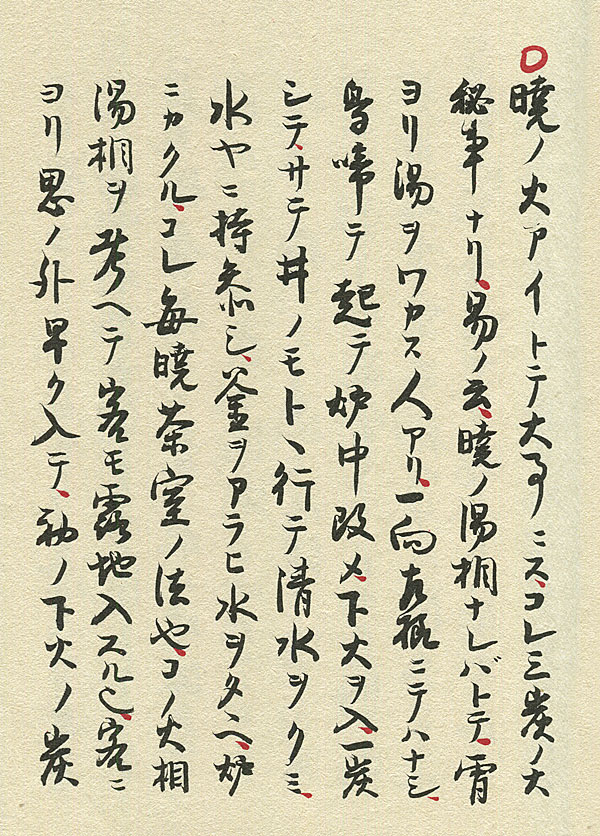 〇暁ノ火アイトテ大事ニス、コレ三炭ノ大
秘事ナリ、易ノ云、暁ノ湯相ナレバトテ、宵
ヨリ湯ヲワカス人アリ、一向左様ニテハナシ、
鳥啼テ起テ炉中改メ、下火ヲ入、一炭
シテ、サテ井ノモトヘ行テ清水ヲクミ、
水ヤニ持参シ、釜ヲアラヒ水ヲタヘ、炉
ニカクル、コレ毎暁茶室ノ法也、コノ火相
湯相ヲ考ヘテ客モ露地入スル也、客ニ
ヨリ思ノ外早ク入テ、初ノ下火ノ炭